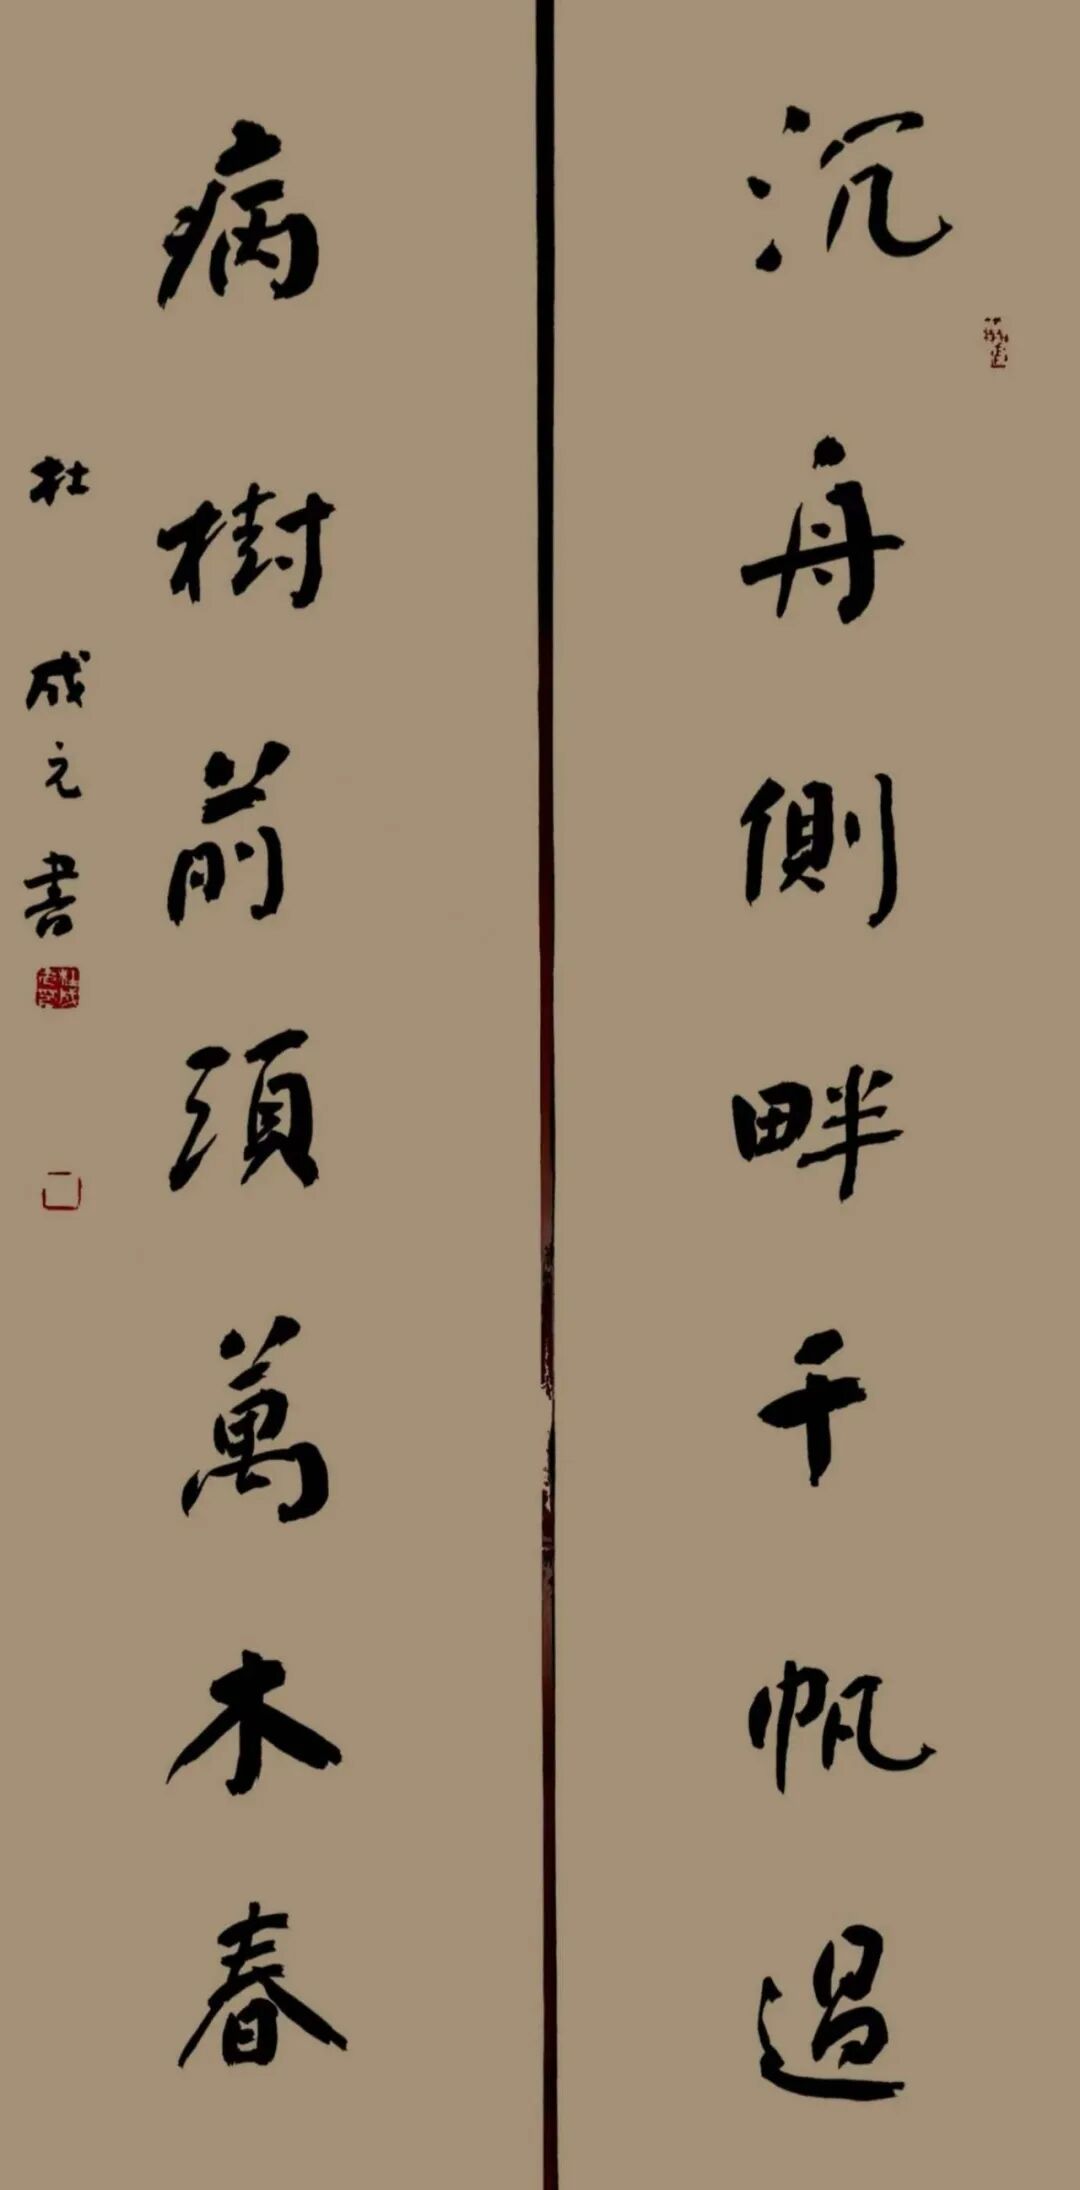 沉舟側畔千帆過
病樹前頭萬木春
杜成元書